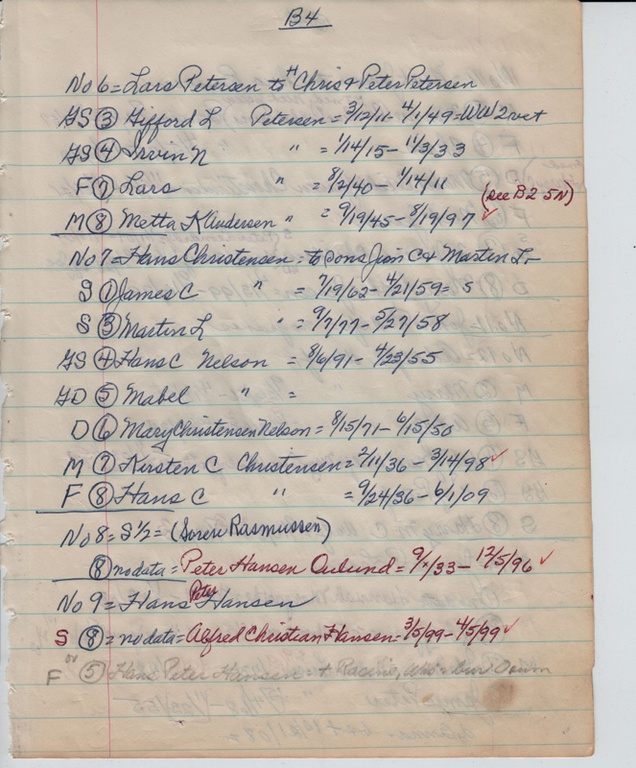 B4
No 6 = Lars Petersen to Chris & Peter Petersen
GS ③ Gifford L Petersen = 3/12/11 - 4/1/49 = WW2 vet
GS ④ Irvin N " = 1/14/15 - 11/3/33
F ⑦ Lars " = 8/2/40 - 1/14/11
M ⑧ Metta K Andersen " = 9/19/45 - 8/19/97 ✓ (see B2 5N)
No 7 = Hans Christensen = to sons Jim C & Martin L
S ① James C " = 7/19/62 - 4/21/59 = S
S ③ Martin L " = 9/7/77 - 5/27/58
GS ④ Hans C Nelson = 8/6/91 - 4/23/55
GD ⑤ Mabel " =
D ⑥ Mary Christensen Nelson = 8/15/71 - 6/15/50
M ⑦ Kirsten C Christensen = 2/11/36 - 3/14/98 ✓
F ⑧ Hans C " = 9/24/36 - 6/1/09
No 8 = S 1/2 = (Soren Rasmussen)
⑧ no data = Peter Hansen Oulund = /33 - 12/5/96 ✓
No 9 = Hans Peter Hansen
S ⑧ = no data = Alfred Christian Hansen = 3/5/99 - 4/5/99 ✓
F ⑤ Hans Peter Hansen = + Racine, Wis = bur